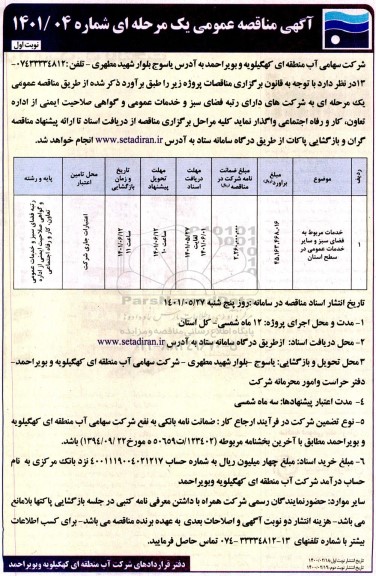 آگهی مناقصه عمومی یک مرحله ای شماره ۰۴ /۱۴۰۱
نوبت اول
شرکت سهامی آب منطقه ای کهگیلویه و بویراحمد به آدرس یاسوج بلوار شهید مطهری - تلفن :۰۷۴۳۳۳۳۴۸۱۲-
۱۳در نظر دارد با توجه به قانون برگزاری مناقصات پروژه زیر را طبق برآورد ذکر شده از طریق مناقصه عمومی
یک مرحله ای به شرکت های دارای رتبه فضای سبز و خدمات عمومی و گواهی صلاحیت ایمنی از اداره
تعاون، کار و رفاه اجتماعی واگذار نماید کلیه مراحل برگزاری مناقصه از دریافت اسناد تا ارائه پیشنهاد مناقصه
گران و بازگشایی پاکات از طریق درگاه سامانه ستاد به آدرس www.setadiran.ir انجام خواهد شد.
ردیف
موضوع
مبلغ برآورد(ریال)
مبلغ ضمانت نامه شرکت در مناقصه (ریال)
مهلت دریافت اسناد
مهلت تحویل پیشنهاد
تاریخ و زمان بازگشایی
محل تامین اعتبار
پایه و رشته
۱
خدمات مربوط به فضای سبز و سایر خدمات عمومی در سطح استان
۴۵,۱۶۳,۴۶۸,۰۱۶
۱۴۰۱/۰۵/۲۷ لغایت ۱۴۰۱/۰۶/۰۱
۱۴۰۱/۰۶/۱۲ ساعت ۱۰
۱۴۰۱/۰۶/۱۲ ساعت ۱۱
اعتبارات جاری شرکت
رتبه فضای سبز و خدمات عمومی و گواهی صلاحیت ایمنی از اداره تعاون، کار و رفاه اجتماعی
تاریخ انتشار اسناد مناقصه در سامانه :روز پنج شنبه ۱۴۰۱/۰۵/۲۷
۱- مدت و محل اجرای پروژه: ۱۲ ماه شمسی- کل استان
۲- محل دریافت اسناد: ازطریق درگاه سامانه ستاد به آدرس www.setadiran.ir
۳محل تحویل و بازگشایی: یاسوج -بلوار شهید مطهری - شرکت سهامی آب منطقه ای کهگیلویه و بویراحمد-
دفتر حراست وامور محرمانه شرکت
۴- مدت اعتبار پیشنهادها: سه ماه شمسی
۵- نوع تضمین شرکت در فرآیند ارجاع کار : ضمانت نامه بانکی به نفع شرکت سهامی آب منطقه ای کهگیلویه
و بویراحمد مطابق با آخرین بخشنامه مربوطه (۱۲۳۴۰۲/ت۵۰۶۵۹ ه مورخ۲۲ /۱۳۹۴/۰۹) باشد.
۶- مبلغ خرید اسناد: مبلغ چهار میلیون ریال به شماره حساب ۴۰۰۱۱۱۹۰۰۴۰۲۱۲۱۷ نزد بانک مرکزی به نام
حساب درآمد شرکت آب منطقه ای کهگیلویه وبویراحمد
سایر موارد: حضورنمایندگان رسمی شرکت همراه با داشتن معرفی نامه کتبی در جلسه بازگشایی پاکتها بلامانع
می باشد- هزینه انتشار دو نوبت آگهی و اصلاحات بعدی به عهده برنده مناقصه می باشد- برای کسب اطلاعات
بیشتر با شماره تلفنهای ۱۳-۳۳۳۳۴۸۱۲ -۰۷۴ تماس حاصل فرمایید.
دفتر قراردادهای شرکت آب منطقه ای کهگیلویه وبویراحمد